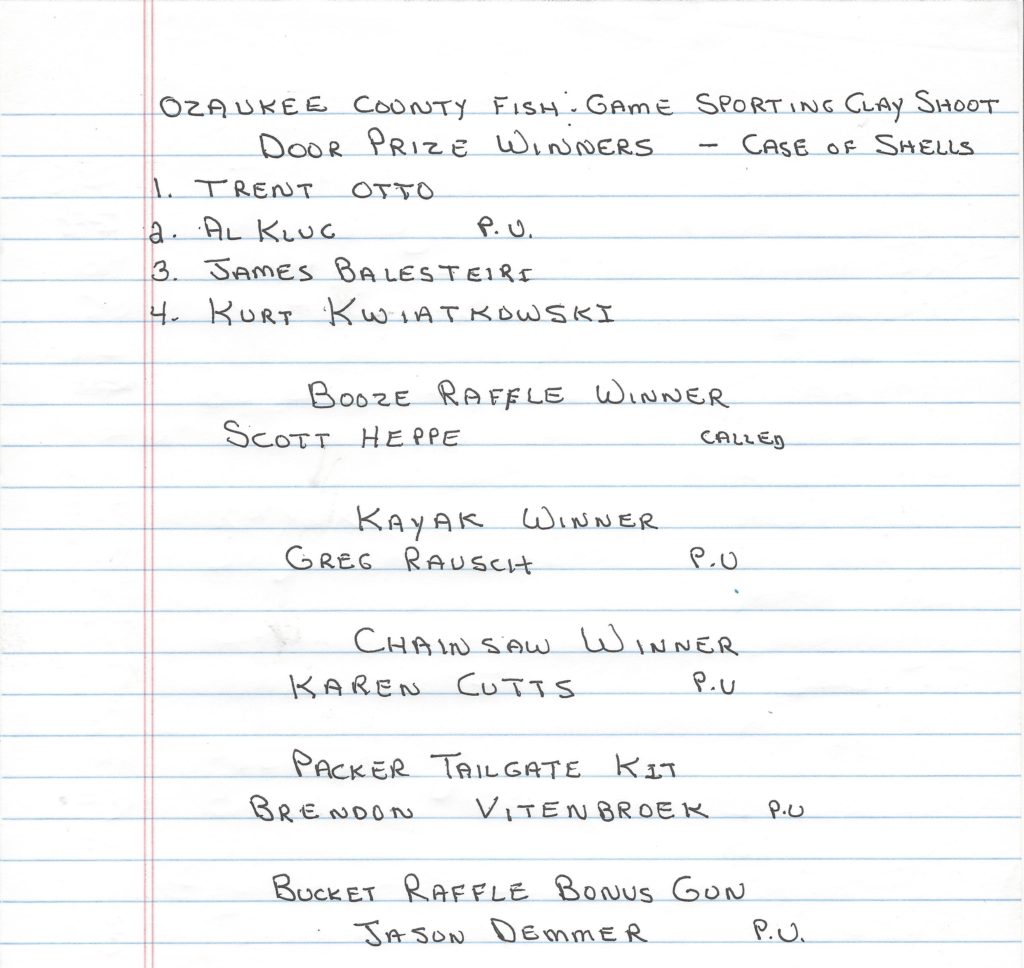 OZAUKEE COUNTY FISH : GAME SPORTING CLAY SHOOT
DOOR PRIZE WINNERS - CASE OF SHELLS
1. TRENT OTTO
2. AL KLUG P.U.
3. JAMES BALESTEIRI
4. KURT KWIATKOWSKI
BOOZE RAFFLE WINNER
SCOTT HEPPE CALLED
KAYAK WINNER
GREG RAUSCH P.U
CHAINSAW WINNER
KAREN CUTTS P.U
PACKER TAILGATE KIT
BRENDON VITENBROEK P.U
BUCKET RAFFLE BONUS GUN
JASON DEMMER P.U.